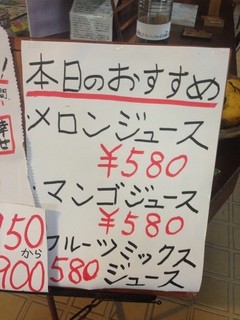 本日のおすすめ
メロンジュース
¥580
マンゴジュース
¥580
フルーツミックス
580 ジュース
から
900